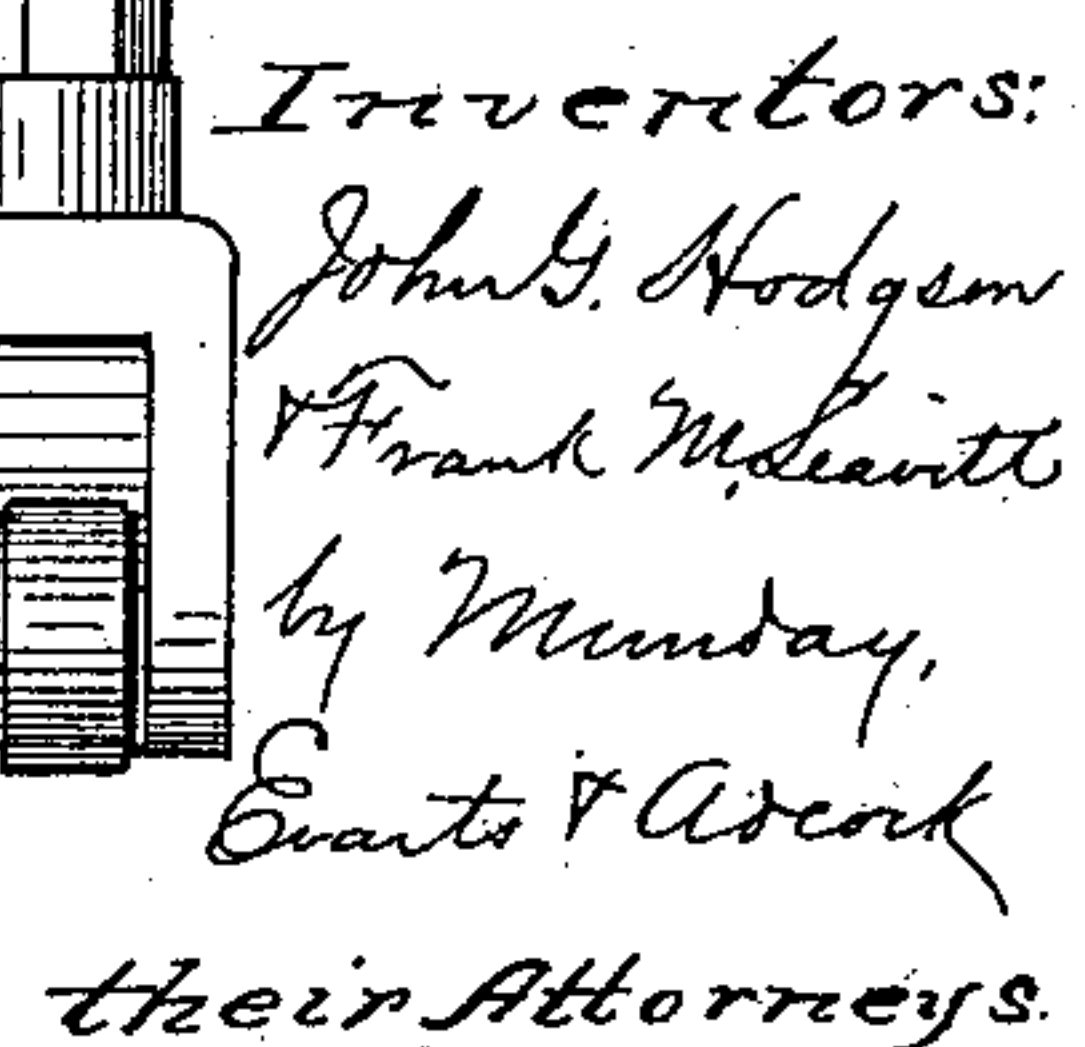 Inventors:
John G. Hodgson
& Frank M. Leavitt
by Munday,
Evarts & Adcock
their Attorneys.